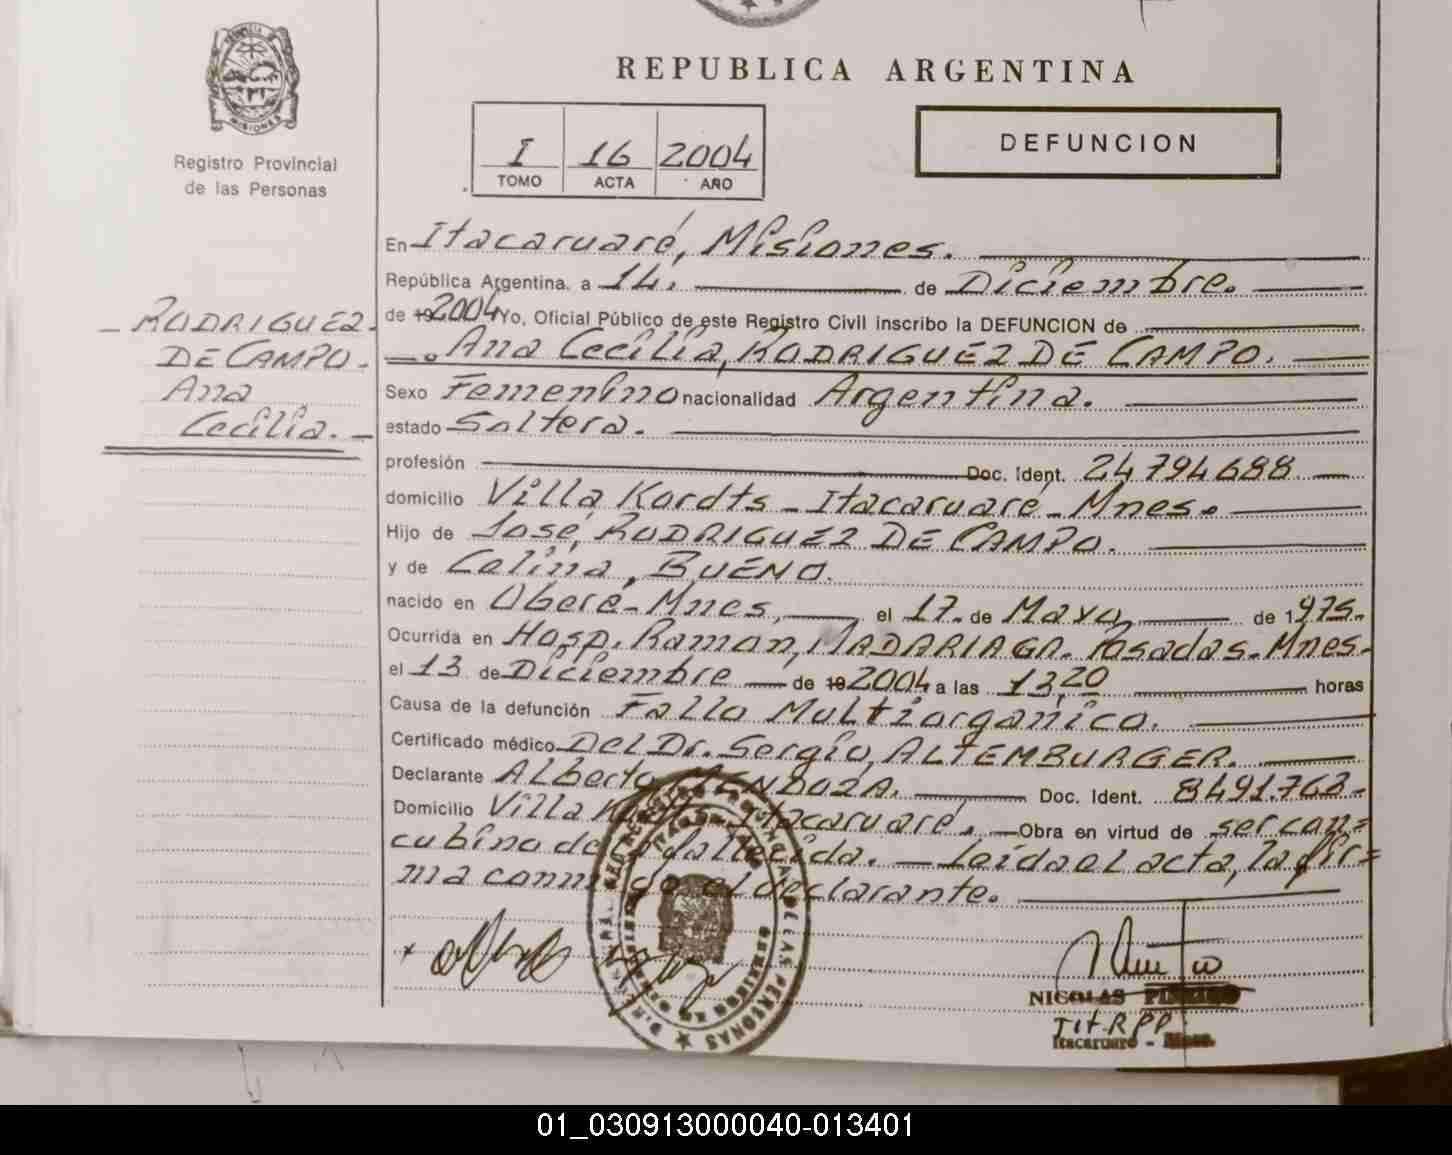 REPUBLICA ARGENTINA
MISIONES
Registro Provincial
de las Personas
I 16 2004
TOMO ACTA AÑO
DEFUNCION
RODRIGUEZ
DE CAMPO.
Ana
Cecilia.
En Itacaruaré, Misiones.
República Argentina, a 14. de Diciembre.
de 19 2004 Yo, Oficial Público de este Registro Civil inscribo la DEFUNCION de
Ana Cecilia, RODRIGUEZ DE CAMPO.
Sexo Femenino nacionalidad Argentina.
estado Soltera.
profesión Doc. Ident. 24794688
domicilio Villa Kordts - Itacaruaré - Mnes.
Hijo de José, RODRIGUEZ DE CAMPO.
y de Celina, BUENO.
nacido en Oberá - Mnes, el 17. de Mayo, de 1975.
Ocurrida en Hosp. Ramon, MADARIAGA. Posadas. Mnes.
el 13 de Diciembre de 19 2004 a las 13,20 horas
Causa de la defunción Fallo Multiorgánico.
Certificado médico Del Dr. Sergio, ALTEMBURGER.
Declarante Alberto MENDOZA. Doc. Ident. 8491.762
Domicilio Villa Itacaruaré. Obra en virtud de ser con=
cubino de fallecida. - Leída el acta, la fir=
ma conmigo el declarante.
NICOLAS
Tit RPP
Itacaruaré - Mnes.
DE LAS PERSONAS
01_030913000040-013401